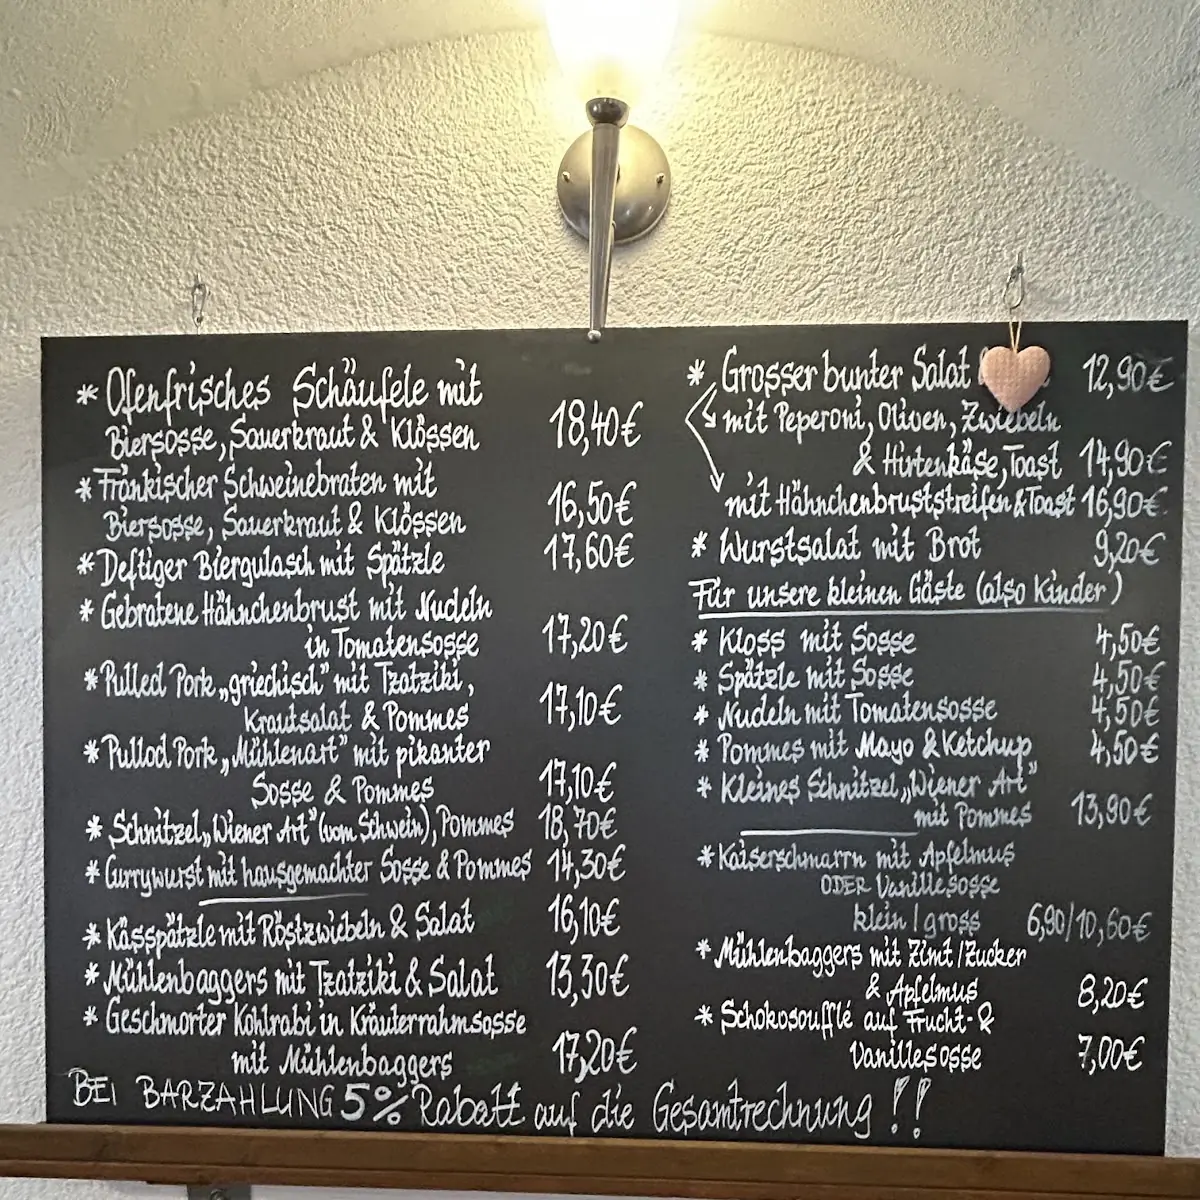 * Ofenfrisches Schäufele mit
Biersosse, Sauerkraut & Klössen 18,40€
* Fränkischer Schweinebraten mit
Biersosse, Sauerkraut & Klössen 16,50€
* Deftiger Biergulasch mit Spätzle 17,60€
* Gebratene Hähnchenbrust mit Nudeln
in Tomatensosse 17,20€
* Pulled Pork „griechisch" mit Tzatziki,
Krautsalat & Pommes 17,10€
* Pullod Pork „Mühlenart" mit pikanter
Sosse & Pommes 17,10€
* Schnitzel „Wiener Art" (vom Schwein), Pommes 18,70€
* Currywurst mit hausgemachter Sosse & Pommes 14,30€
* Kässpätzle mit Röstzwiebeln & Salat 16,10€
* Mühlenbaggers mit Tzatziki & Salat 13,30€
* Geschmorter Kohlrabi in Kräuterrahmsosse
mit Mühlenbaggers 17,20€
* Grosser bunter Salat 12,90€
mit Peperoni, Oliven, Zwiebeln
& Hirtenkäse, Toast 14,90€
mit Hähnchenbruststreifen & Toast 16,90€
* Wurstsalat mit Brot 9,20€
Für unsere kleinen Gäste (also Kinder)
* Kloss mit Sosse 4,50€
* Spätzle mit Sosse 4,50€
* Nudeln mit Tomatensosse 4,50€
* Pommes mit Mayo & Ketchup 4,50€
* Kleines Schnitzel „Wiener Art"
mit Pommes 13,90€
* Kaiserschmarrn mit Apfelmus
ODER Vanillesosse
klein / gross 6,90/10,60€
* Mühlenbaggers mit Zimt/Zucker
& Apfelmus 8,20€
* Schokosoufflé auf Frucht- &
Vanillesosse 7,00€
BEI BARZAHLUNG 5% Rabatt auf die Gesamtrechnung !!